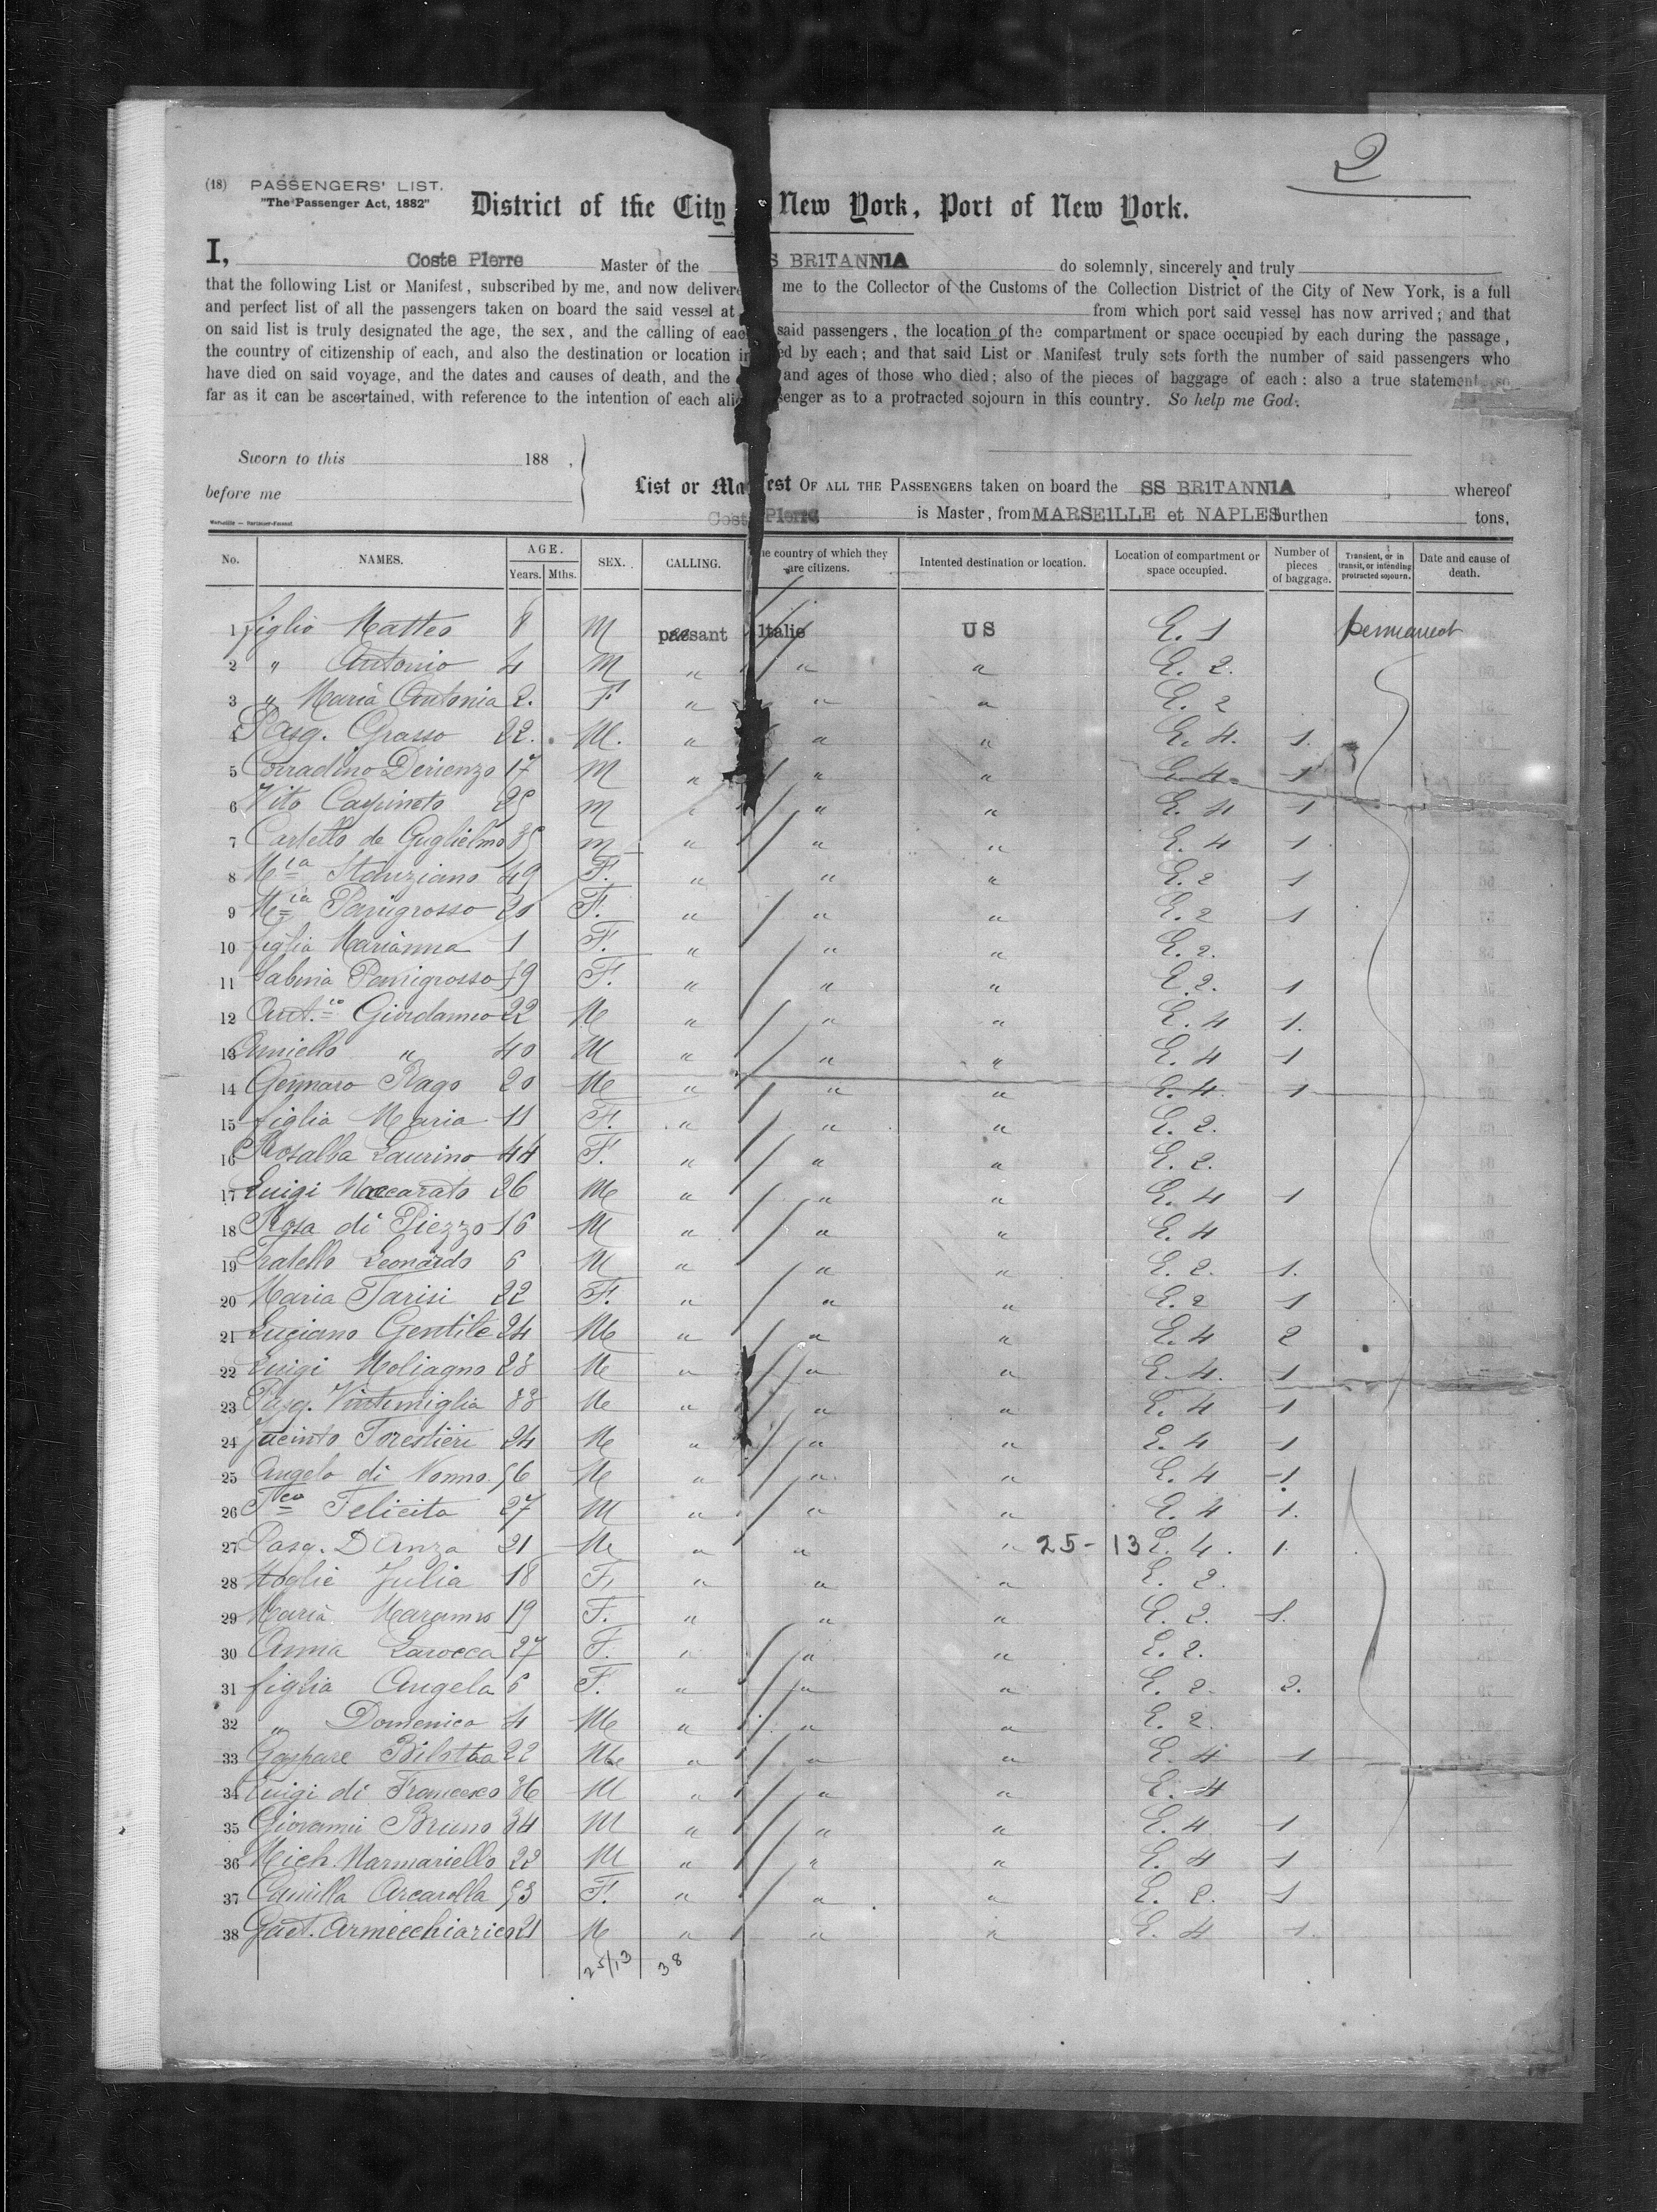 2
(18) PASSENGERS' LIST.
"The Passenger Act, 1882"
District of the City New York, Port of New York.
I, Coste Pierre Master of the S BRITANNIA do solemnly, sincerely and truly
that the following List or Manifest, subscribed by me, and now delivere me to the Collector of the Customs of the Collection District of the City of New York, is a full
and perfect list of all the passengers taken on board the said vessel at from which port said vessel has now arrived; and that
on said list is truly designated the age, the sex, and the calling of eac said passengers, the location of the compartment or space occupied by each during the passage,
the country of citizenship of each, and also the destination or location in ed by each; and that said List or Manifest truly sets forth the number of said passengers who
have died on said voyage, and the dates and causes of death, and the and ages of those who died; also of the pieces of baggage of each: also a true statement, so
far as it can be ascertained, with reference to the intention of each alie senger as to a protracted sojourn in this country. So help me God.
Sworn to this 188 ,
before me
List or Ma fest OF ALL THE PASSENGERS taken on board the SS BRITANNIA whereof
Coste Pierre is Master, from MARSEILLE et NAPLES burthen tons,
No. NAMES. AGE. Years. Mths. SEX. CALLING. he country of which they are citizens. Intented destination or location. Location of compartment or space occupied. Number of pieces of baggage. Transient, or in transit, or intending protracted sojourn. Date and cause of death.
1 figlio Matteo 8 M paesant Italie US E. 1 permanent
2 " Antonio 4 M " " " E. 2.
3 " Maria Antonia 2. F " " " E. 2
4 Pasq. Grasso 22. M. " " " E. 4. 1.
5 Corradino Derienzo 17 M " " " E. 4. 1
6 Vito Carpineto 25 m " " " E. 4 1
7 de Guglielmo 35 m " " " E. 4 1
8 Mia Stanziano 49 F. " " " E. 2 1
9 Mia Panigrosso 20 F. " " " E. 2 1
10 figlia Marianna 1 F. " " " E. 2.
11 Sabina Panigrosso 19 F. " " " E. 2. 1
12 Ant.io Giordano 22 M " " " E. 4 1.
13 Aniello " 40 M " " " E. 4 1
14 Gennaro Rago 20 M " " " E. 4. 1
15 figlia Maria 11 F. " " " E. 2.
16 Rosalba Laurino 44 F. " " " E. 2.
17 Luigi Maccarato 26 M " " " E. 4 1
18 Rosa di Piezzo 16 M " " " E. 4
19 Fratello Leonardo 6 M " " " E. 2. 1.
20 Maria Parisi 22 F. " " " E. 2 1
21 Luciano Gentile 24 M " " " E. 4 2
22 Luigi Moliagno 28 M " " " E. 4. 1
23 Pasq. Vintimiglia 33 M " " " E. 4 1
24 Jacinto Forestieri 24 M " " " E. 4 1
25 Angelo di Nonno 56 M " " " E. 4 1.
26 Fco Felicita 27 M " " " E. 4 1.
27 Pasq. D Anza 21 M " " " 25 - 13 E. 4. 1.
28 Moglie Julia 18 F. " " " E. 2.
29 Maria 19 F. " " " E. 2. 1.
30 Anna Larocca 27 F. " " " E. 2.
31 figlia Angela 6 F. " " " E. 2. 2.
32 " Domenico 4 M " " " E. 2.
33 Gaspare Bilotta 22 M " " " E. 4 1
34 Luigi di Francesco 36 M " " " E. 4
35 Giovanni Bruno 34 M " " " E. 4 1
36 Mich. Marmariello 22 M " " " E. 4 1
37 Camilla Arcarolla 53 F. " " " E. 2. 1
38 Gaet. Armecchiarico 21 M " " " E. 4 1.
25/13 38